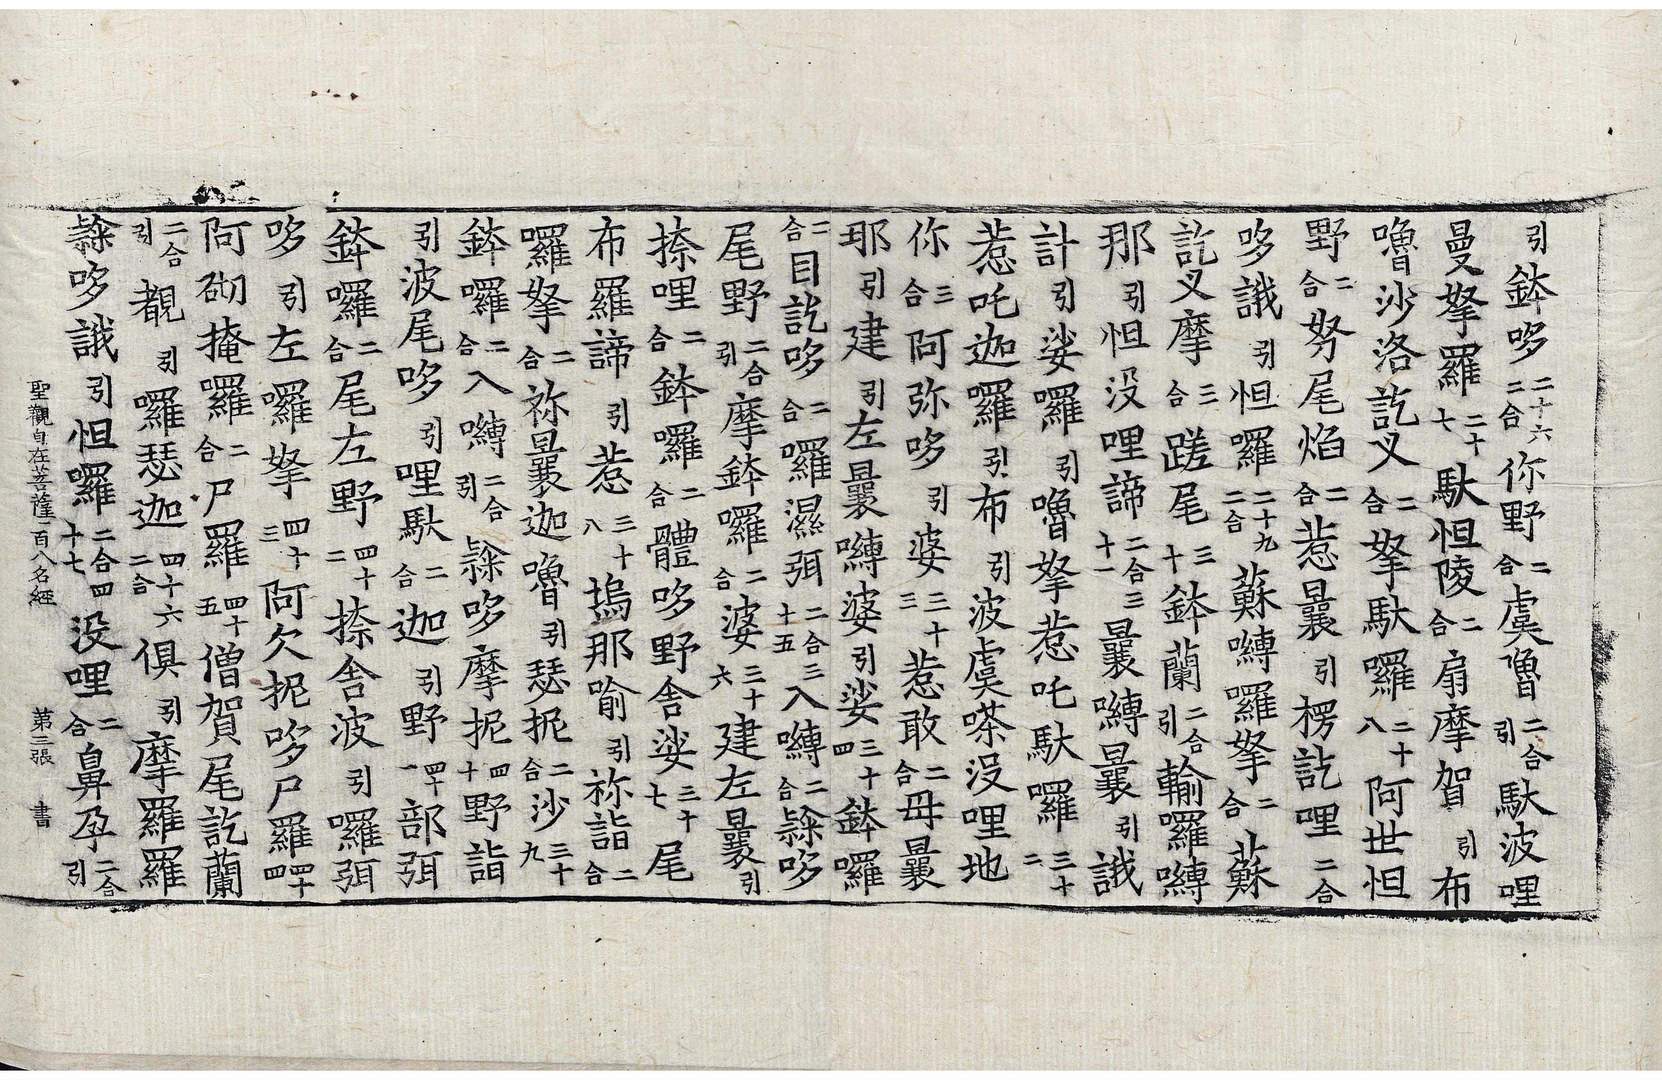 引鉢哆二十六二合你野二合虞嚕二合引馱波哩
曼拏羅二十七馱怛陵二合扇摩賀引布
嚕沙洛訖叉二合拏馱囉二十八阿世怛
野二合努尾焰二合惹曩引楞訖哩二合
哆誐引怛囉二十九二合蘇嚩囉拏二合蘇
訖叉摩三合蹉尾三十鉢蘭二合引輸囉嚩
那引怛沒哩諦二合三十一曩嚩曩引誐
計引娑囉引嚕拏惹吒馱囉三十二
惹吒迦囉引布引波虞嗏沒哩地
你三合阿弥哆引婆三十三惹敢二合毋曩
耶引建引左曩嚩婆引娑三十四鉢囉
二合目訖哆二合囉濕弭二合三十五入嚩二合隸哆
尾野二合引摩鉢囉二合婆三十六建左曩引
捺哩二合鉢囉二合體哆野舍娑三十七尾
布羅諦引惹三十八塢那喻引祢詣二合
囉拏二合祢曩迦嚕引瑟抳二合沙三十九
鉢囉二合入嚩二合引隸哆摩抳四十野詣
引波尾哆引哩馱二合迦引野四十一部弭
鉢囉二合尾左野四十二捺舍波引囉弭
哆引左囉拏四十三阿欠抳哆尸羅四十四
阿砌掩囉二合尸羅四十五僧賀尾訖蘭
二合引覩引囉瑟迦四十六二合俱引摩羅羅
隸哆誐引怛囉二合四十七没哩二合鼻孕二合引
聖觀自在菩薩一百八名經 第三張 書